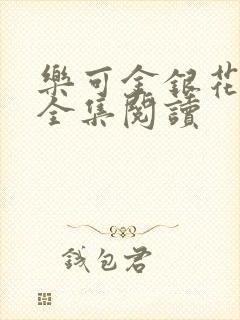 樂可金銀花
全集閱讀
錢包君